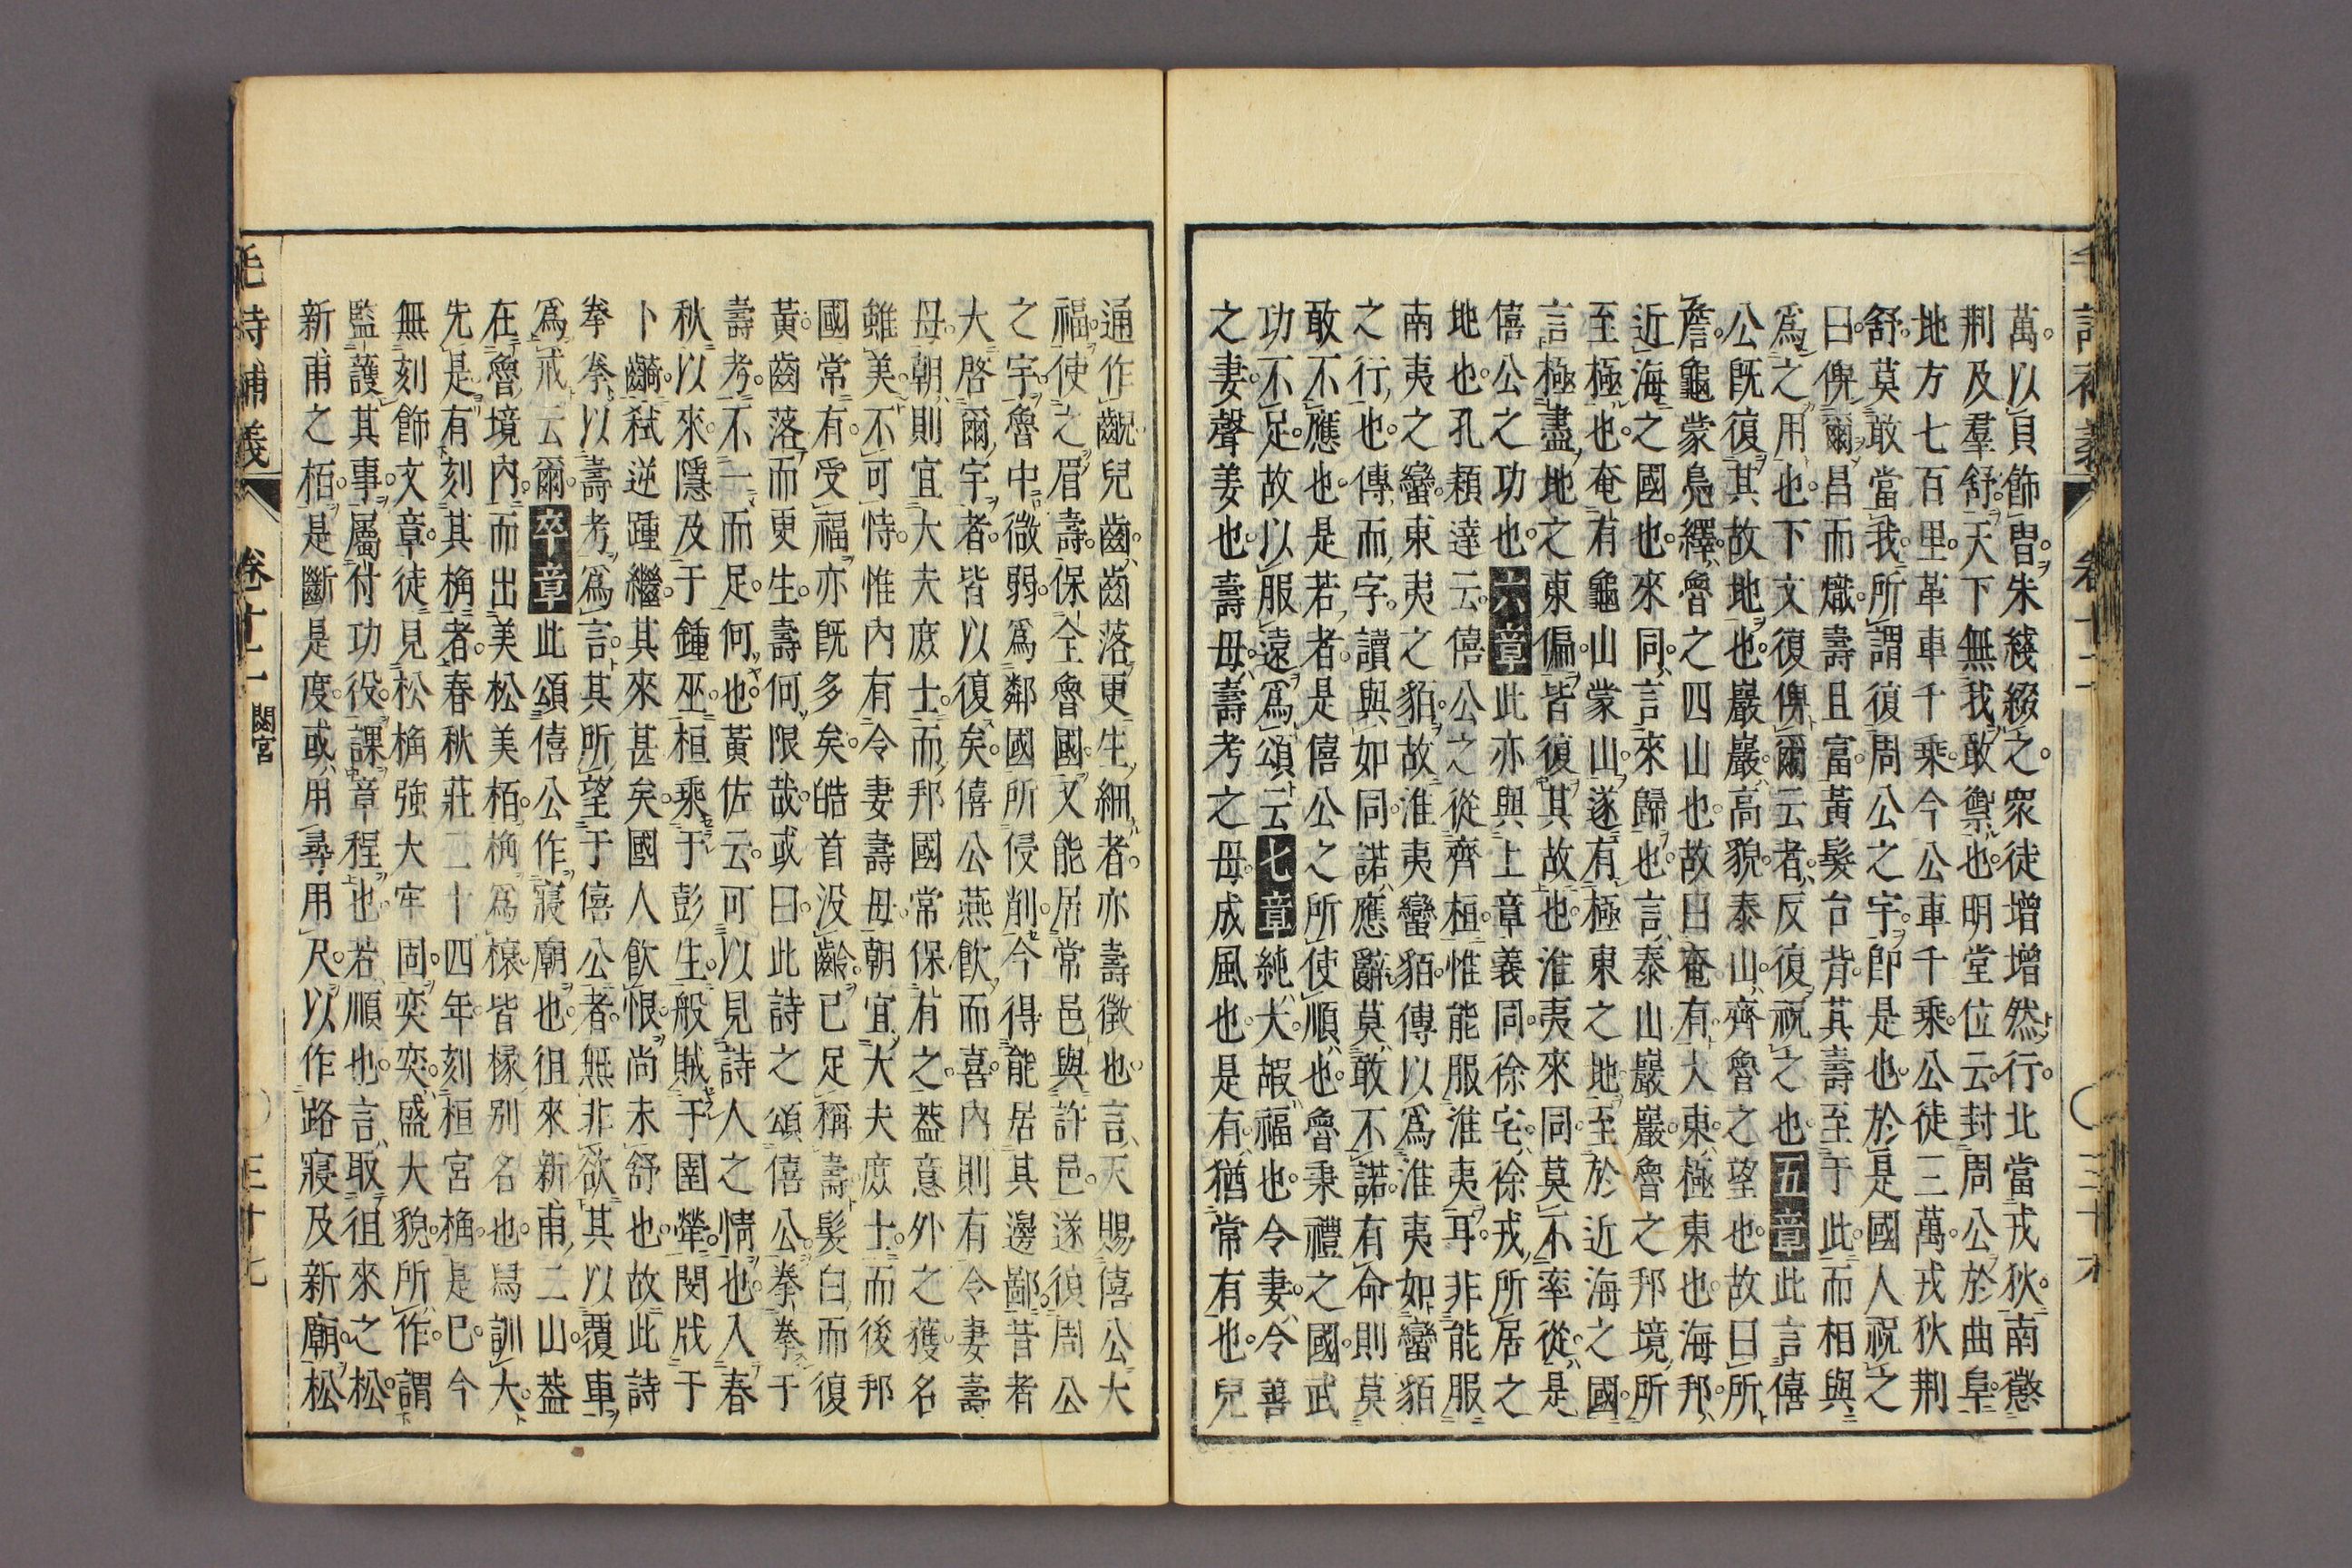 萬以貝飾冑朱綫綴之衆徒增增然行北當戎狄南懲
荆及羣舒天下無我敢禦也明堂位云封周公於曲阜
地方七百里革車千乘今公車千乘公徒三萬戎狄荆
舒莫敢當我所謂復周公之宇卽是也於是國人祝之
曰俾爾昌而熾壽且富黃髮台背其壽至于此而相與
爲之用也下文復俾爾云者反復祝之也五章此言僖
公旣復其故地也巖巖高貌泰山齊魯之望也故曰所
詹龜蒙鳧繹魯之四山也故曰奄有大東極東也海邦
近海之國也來同言來歸也言泰山巖巖魯之邦境所
至極也奄有龜山蒙山遂有極東之地至於近海之國
言極盡地之東偏皆復其故也淮夷來同莫不率從是
僖公之功也六章此亦與上章義同徐宅徐戎所居之
地也孔頴達云僖公之從齊桓惟能服淮夷耳非能服
南夷之蠻東夷之貊故淮夷蠻貊傳以爲淮夷如蠻貊
之行也傳而字讀與如同諾應辭莫敢不諾有命則莫
敢不應也是若者是僖公之所使順也魯秉禮之國武
功不足故以服遠爲頌云七章純大嘏福也令妻令善
之妻聲姜也壽母壽考之母成風也是有猶常有也兒
通作齯兒齒齒落更生細者亦壽徵也言天賜僖公大
福使之眉壽保全魯國又能居常邑與許邑遂復周公
之宇魯中微弱爲鄰國所侵削今得能居其邊鄙昔者
大啓爾宇者皆以復矣僖公燕飮而喜內則有令妻壽
母朝則宜大夫庶士而邦國常保有之葢意外之獲名
雖美不可恃惟內有令妻壽母朝宜大夫庶士而後邦
國常有受福亦旣多矣皓首沒齡已足稱壽髮白而復
黃齒落而更生壽何限哉或曰此詩之頌僖公拳拳于
壽考不一而足何也黃佐云可以見詩人之情也入春
秋以來隱及于鍾巫桓乘于彭生般賊于圉犖閔戕于
卜齮弒逆踵繼其來甚矣國人飮恨尚未舒也故此詩
拳拳以壽考爲言其所望于僖公者無非欲其以覆車
爲戒云爾卒章此頌僖公作寢廟也徂來新甫二山葢
在魯境內而出美松美栢桷爲榱皆椽別名也舄訓大
先是有刻其桷者春秋莊二十四年刻桓宮桷是巳今
無刻飾文章徒見松桷強大牢固奕奕盛大貌所作謂
監護其事屬付功役課章程也若順也言取徂來之松
新甫之栢是斷是度或用尋用尺以作路寢及新廟松
毛詩補義
卷十二
閟宮
三十七